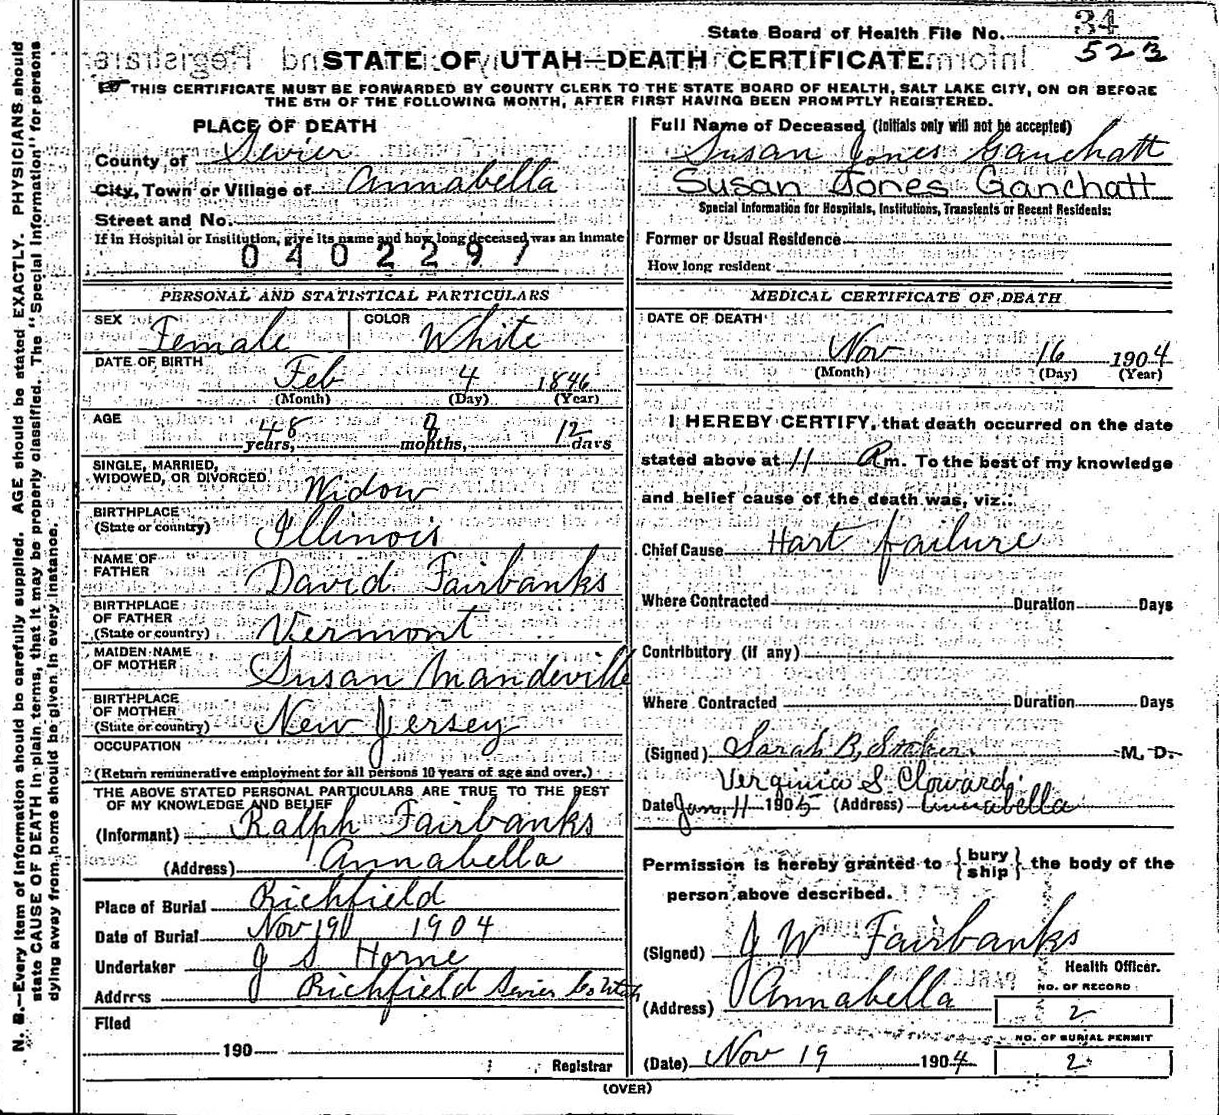 State Board of Health File No. 34
52B
STATE OF UTAH—DEATH CERTIFICATE.
THIS CERTIFICATE MUST BE FORWARDED BY COUNTY CLERK TO THE STATE BOARD OF HEALTH, SALT LAKE CITY, ON OR BEFORE
THE 5TH OF THE FOLLOWING MONTH, AFTER FIRST HAVING BEEN PROMPTLY REGISTERED.
PLACE OF DEATH
County of Sevier
City, Town or Village of Annabella
Street and No.
If in Hospital or Institution, give its name and how long deceased was an inmate
0402297
Full Name of Deceased (Initials only will not be accepted)
Susan Jones Ganchatt
Susan Jones Ganchatt
Special Information for Hospitals, Institutions, Transients or Recent Residents:
Former or Usual Residence
How long resident
PERSONAL AND STATISTICAL PARTICULARS
SEX Female COLOR White
DATE OF BIRTH Feb 4 1846
(Month) (Day) (Year)
AGE 48 years, 9 months, 12 days
SINGLE, MARRIED,
WIDOWED, OR DIVORCED Widow
BIRTHPLACE
(State or country) Illinois
NAME OF
FATHER David Fairbanks
BIRTHPLACE
OF FATHER
(State or country) Vermont
MAIDEN NAME
OF MOTHER Susan Mandeville
BIRTHPLACE
OF MOTHER
(State or country) New Jersey
OCCUPATION
(Return remunerative employment for all persons 10 years of age and over.)
THE ABOVE STATED PERSONAL PARTICULARS ARE TRUE TO THE BEST
OF MY KNOWLEDGE AND BELIEF
(Informant) Ralph Fairbanks
(Address) Annabella
Place of Burial Richfield
Date of Burial Nov 19 1904
Undertaker J S Horne
Address Richfield Sevier Co Utah
Filed
190
Registrar
MEDICAL CERTIFICATE OF DEATH
DATE OF DEATH
Nov 16 1904
(Month) (Day) (Year)
I HEREBY CERTIFY, that death occurred on the date
stated above at 11 A m. To the best of my knowledge
and belief cause of the death was, viz.:
Chief Cause Hart failure
Where Contracted Duration Days
Contributory (if any)
Where Contracted Duration Days
(Signed) Sarah B, M. D.
Verginia S. Cloward
Date Jan. 11 1905 (Address) Annabella
Permission is hereby granted to { bury ship } the body of the
person above described.
(Signed) J W Fairbanks
Health Officer.
(Address) Annabella
NO. OF RECORD
2
(Date) Nov 19 1904
NO. OF BURIAL PERMIT
2
(OVER)
N. B.—Every item of information should be carefully supplied. AGE should be stated EXACTLY. PHYSICIANS should
state CAUSE OF DEATH in plain terms, that it may be properly classified. The "Special Information" for persons
dying away from home should be given in every instance.